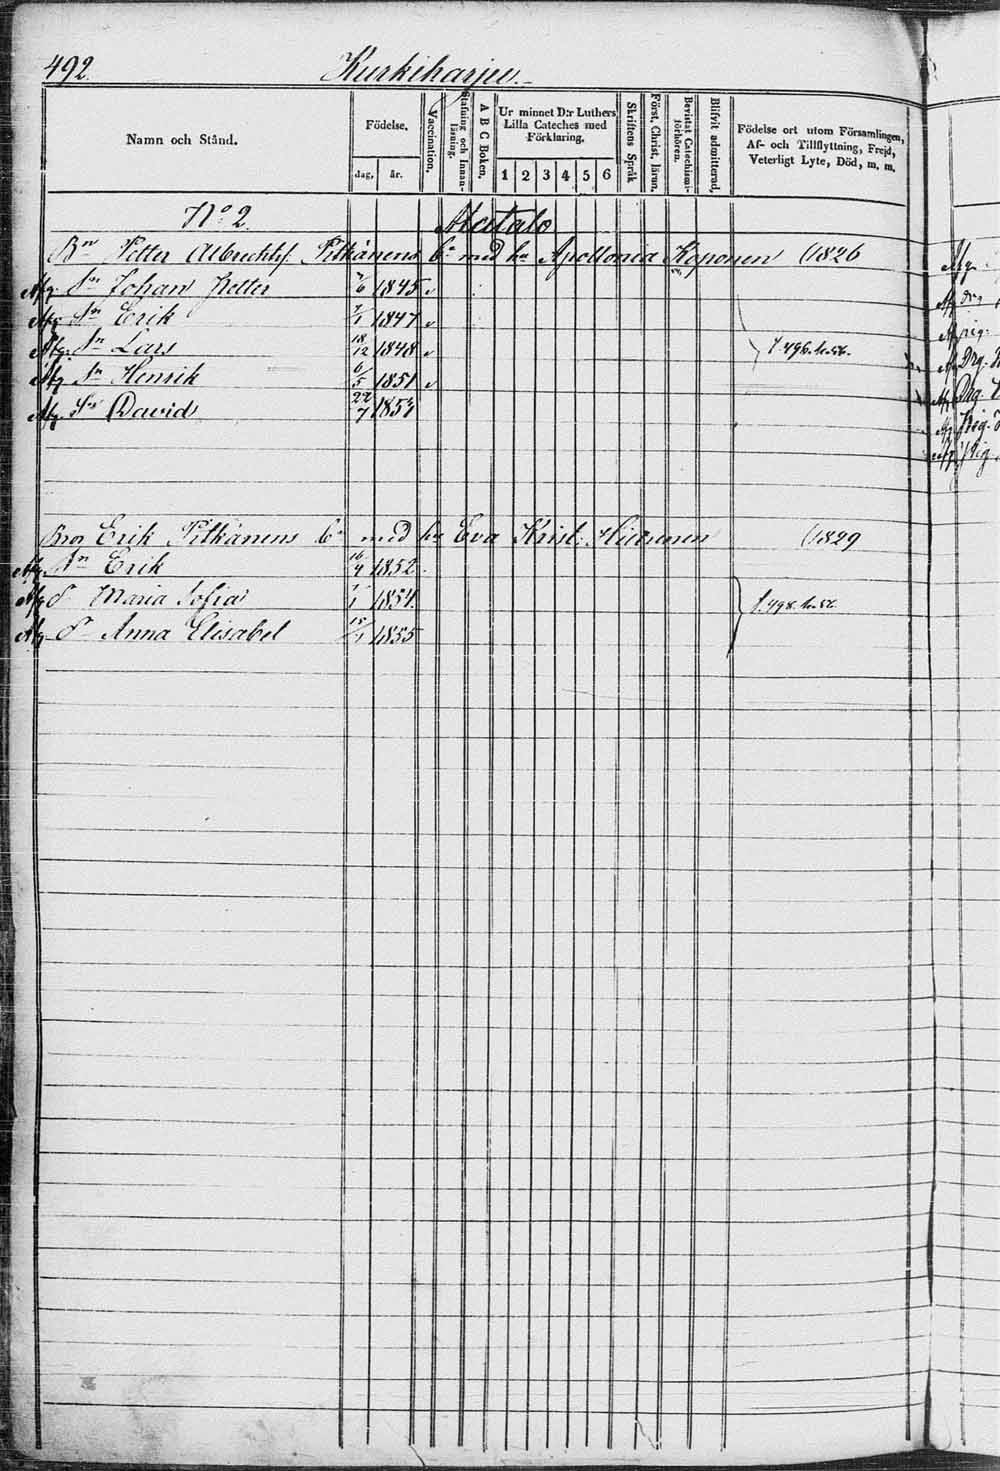 492. Kurkiharju.
Namn och Stånd.
Födelse.
dag.
år.
Vaccination.
Stafning och Innanläsning.
A B C Boken.
Ur minnet D:r Luthers
Lilla Cateches med
Förklaring.
1 2 3 4 5 6
Skriftens Språk
Först. Christ. läran.
Bevistat Catechismiförhören.
Blifvit admitterad.
Födelse ort utom Församlingen,
Af- och Tillflyttning, Frejd,
Veterligt Lyte, Död, m. m.
No 2. Matalo
Bn Petter Albrechtss. Pitkänens bn med hu Apollonia Koponen (1826
Afg. Sn Johan Petter 7/6 1845 v
Afg. Sn Erik 7/1 1847 v
Afg. Sn Lars 18/12 1848 v
Afg. Sn Henrik 6/5 1851 v
Afg. Sn David 22/7 1853
Bror Erik Pitkänens bn med hu Eva Krist: (1829
Afg. Sn Erik 16/4 1852
Afg. D Maria Sofia 7/1 1854.
Afg. D Anna Elisabet 15/1 1855